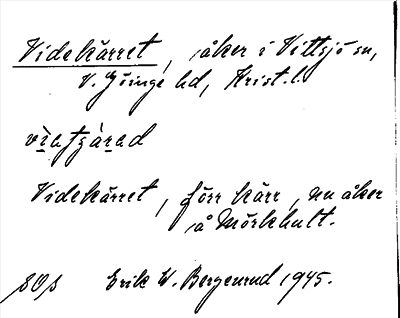 Videkärret, åker i Vittsjö sn,
V. Göinge hd, Krist. l.
Videkärret, förr kärr, nu åker
å Mörkhult.
SOS Erik W. Bergenrud 1945.